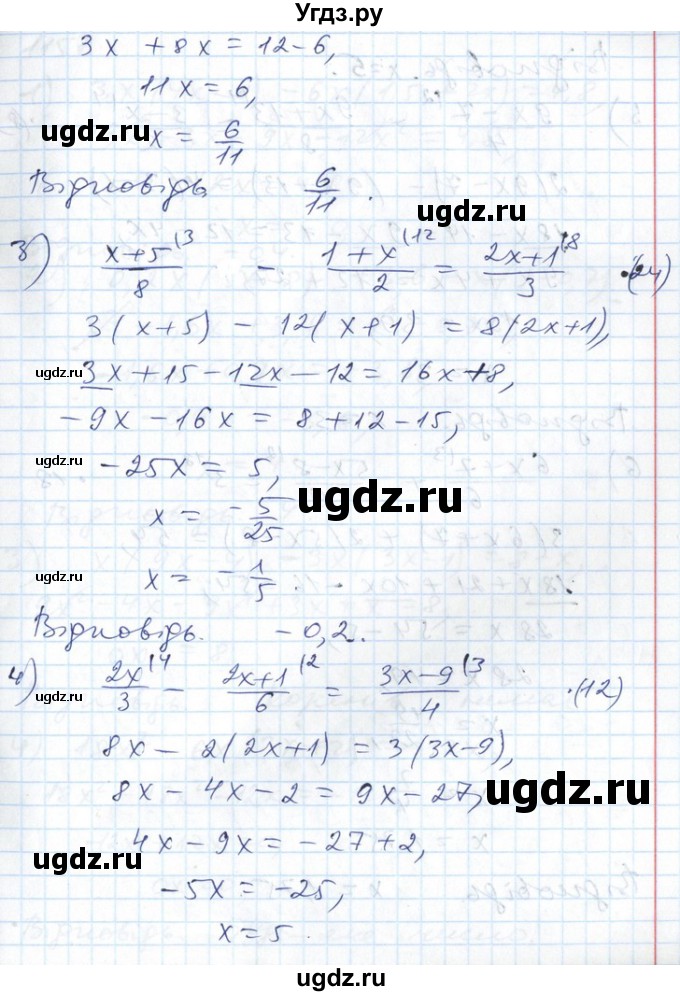 Угдз.ру
3x + 8x = 12-6,
11x = 6,
ugdz.ru x = 6/11
Відповідь 6/11.
ugdz.ru
3) (x+5)/8 (3 - (1+x)/2 (12 = (2x+1)/3 (8 ·(24)
3(x+5) - 12(x+1) = 8(2x+1),
ugdz.ru 3x+15-12x-12 = 16x+8,
-9x - 16x = 8+12-15,
ugdz.ru -25x = 5,
ugdz.ru
x = -5/25
ugdz.ru x = -1/5.
Відповідь. -0,2.
4) 2x/3 (4 - (2x+1)/6 (2 = (3x-9)/4 (3 ·(12)
ugdz.ru
8x - 2(2x+1) = 3(3x-9),
8x - 4x - 2 = 9x-27,
ugdz.ru
ugdz.ru 4x-9x = -27+2,
-5x = -25,
ugdz.ru x = 5.
ugdz.ru